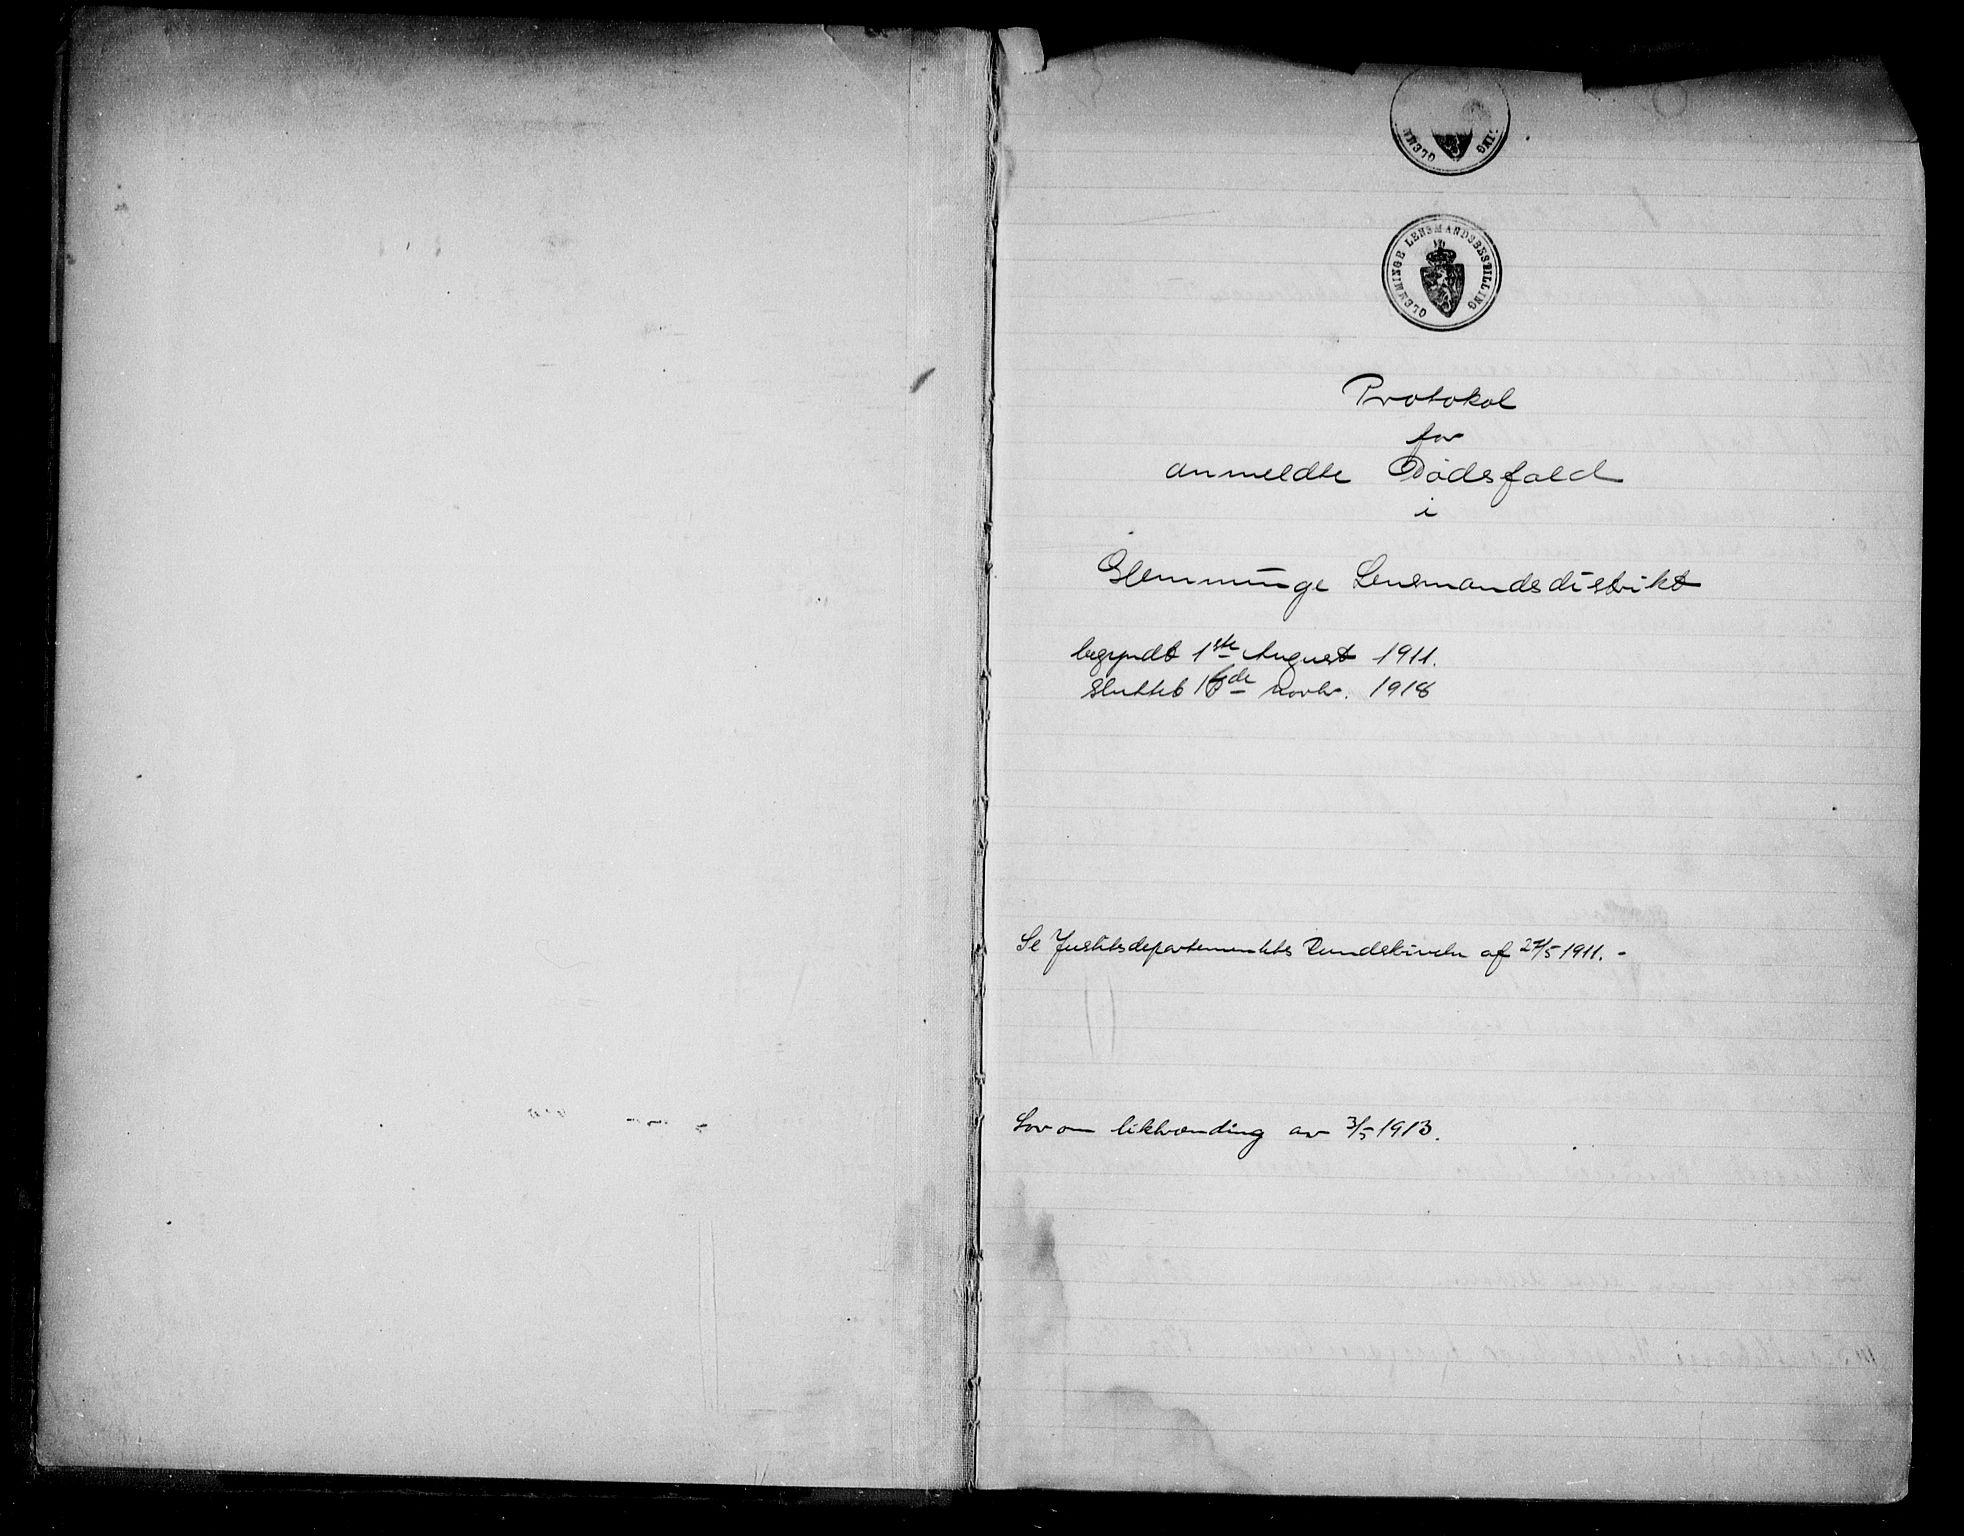 GLEMM ING
GLEMMINGE LENSMANDSBESTILLING
Protokol
for
anmeldte Dødsfald
i
Glemminge Lensmandsdistrikt
begyndt 1ste August 1911.
sluttet 16de novbr. 1918
Se Justitsdepartementets Rundskrivelse af 27/5 1911. -
Lov om likbrænding av 3/5 1913.